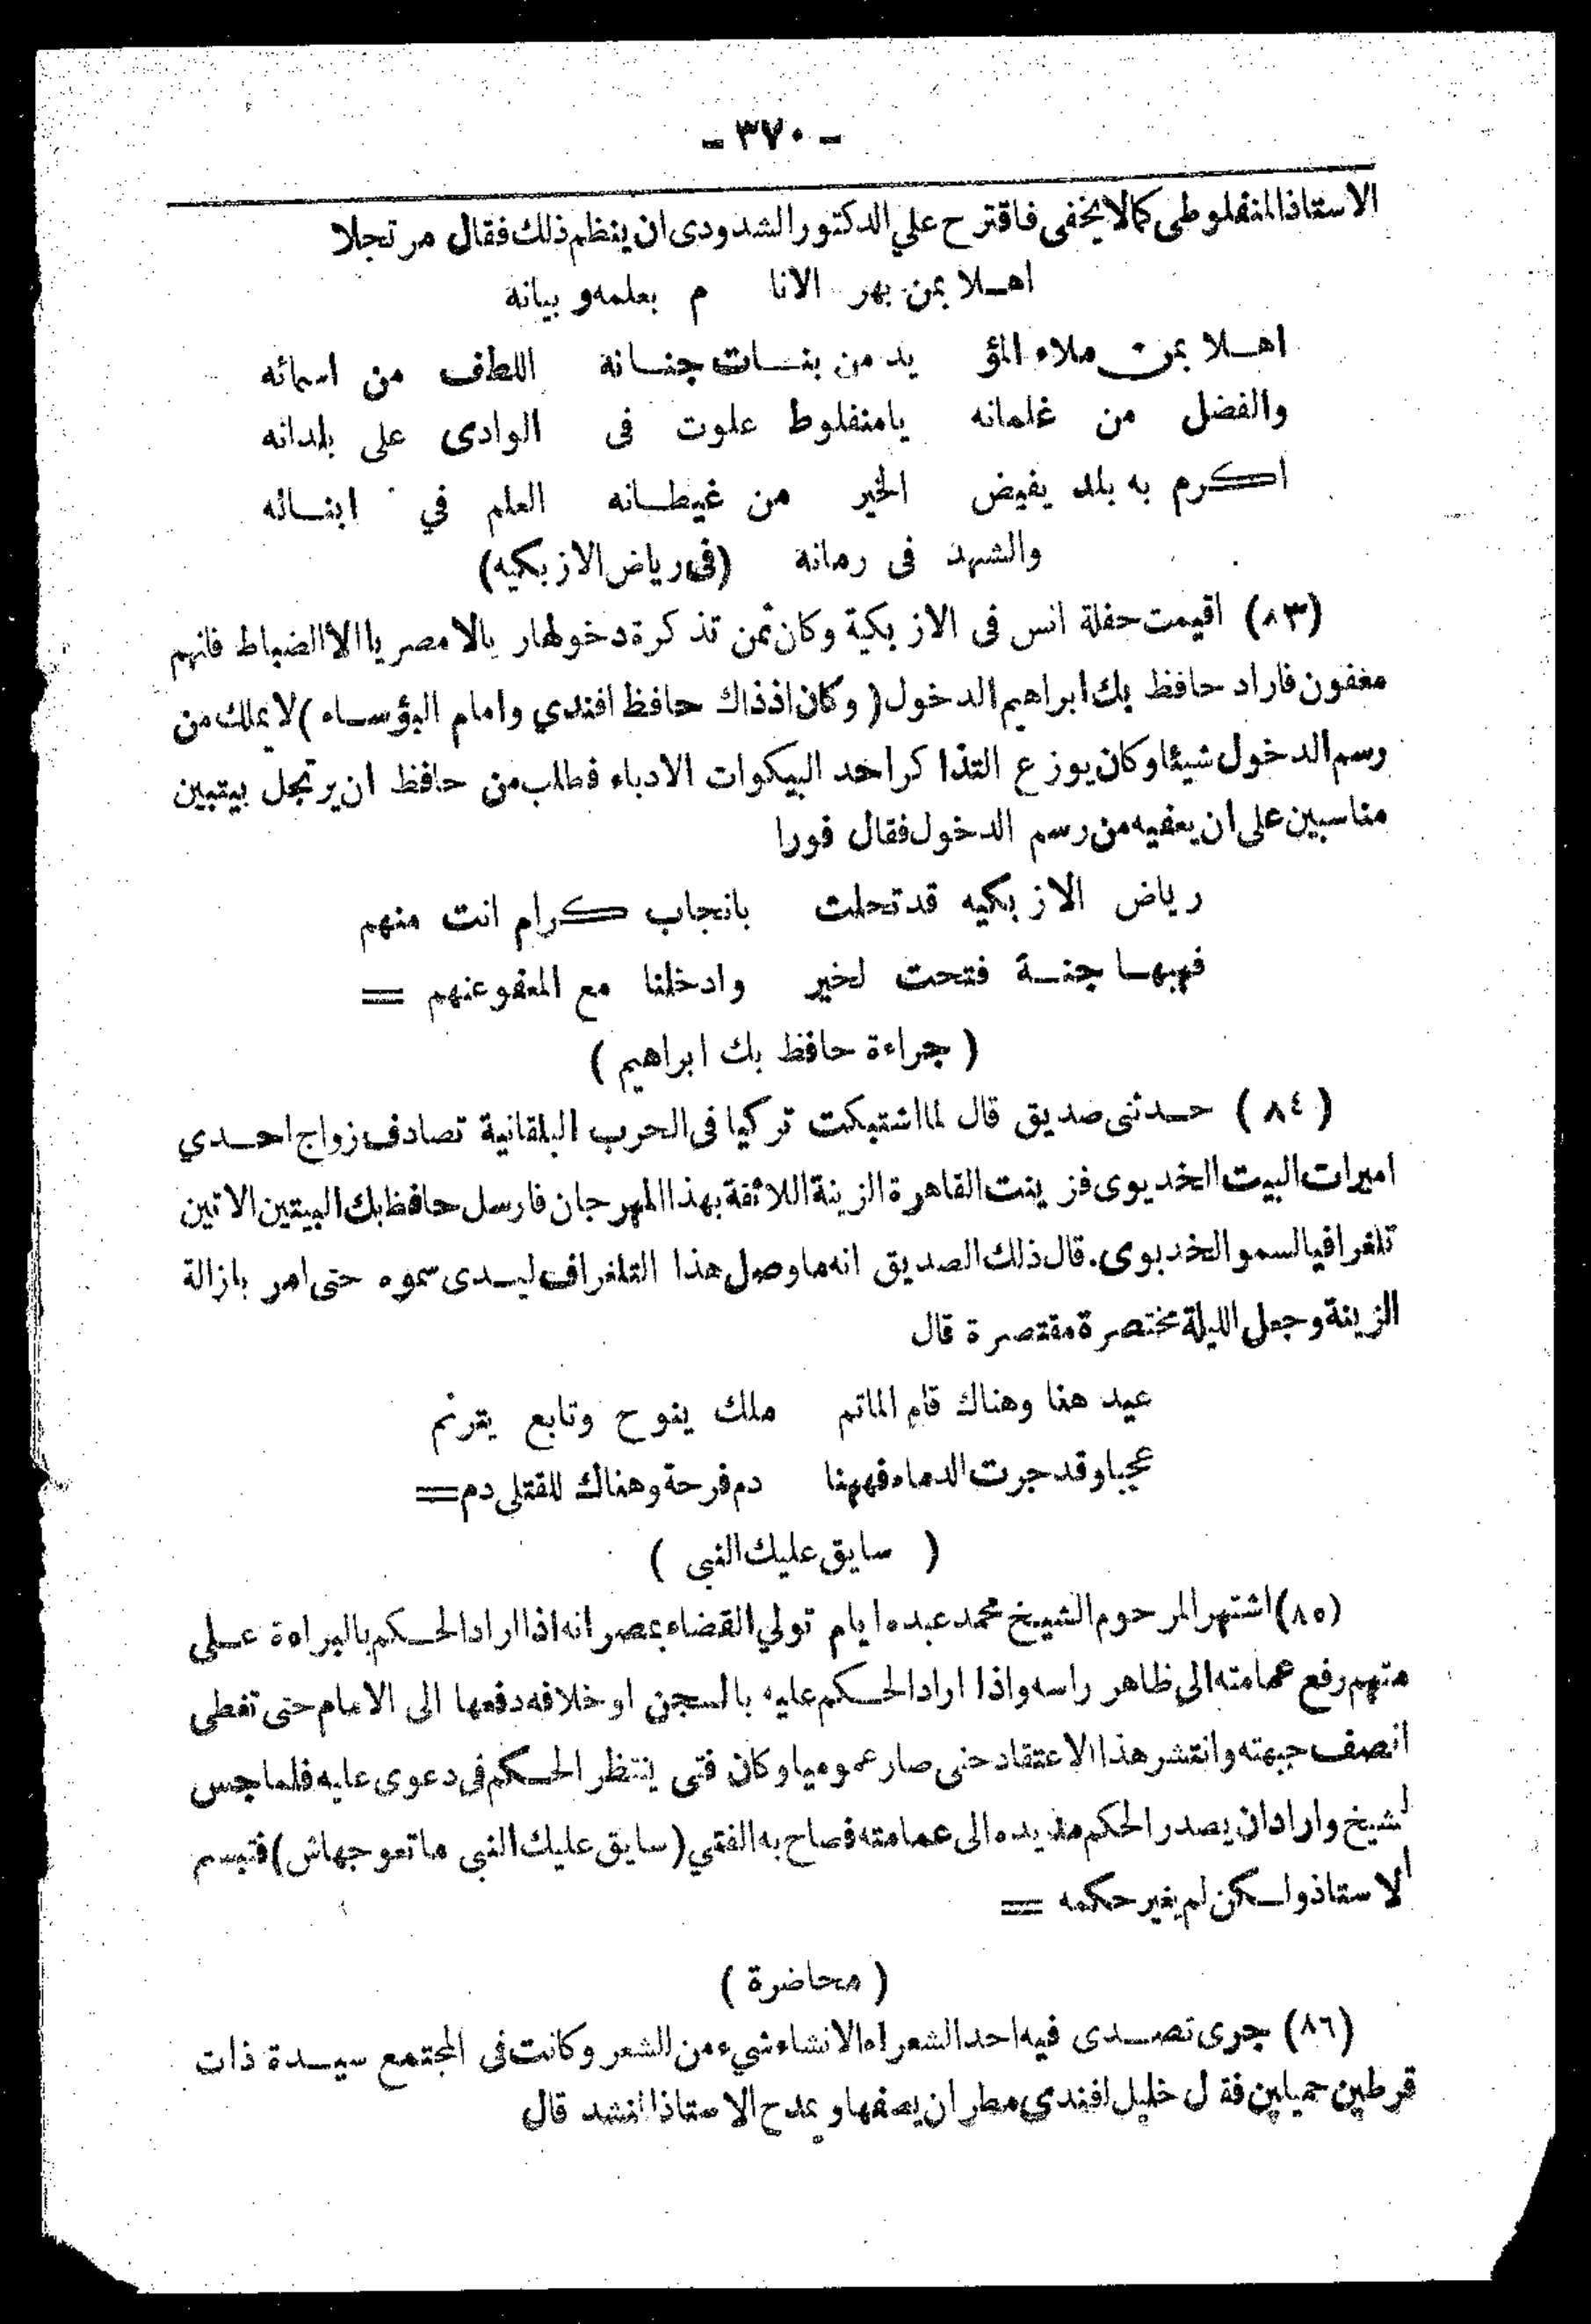 - ٣٧٠ -
الاستاذ المنفلوطى كما لا يخفى فاقترح علي الدكتور الشدودى ان ينظم ذلك فقال مرتجلا
اهلا بمن بهر الانا م بعلمه و بيانه
اهلا بمن ملاء المؤ يد من بنات جنانة اللطف من اسمائه
والفضل من غلمانه يا منفلوط علوت فى الوادى على بلدانه
اكرم به بلد يفيض الخير من غيطانه العلم في ابنائه
والشهد فى رمانة (فى رياض الازبكيه)
(٨٣) اقيمت حفلة انس فى الازبكية وكان ثمن تذكرة دخولها ريالا مصريا الا الضباط فانهم
معفون فاراد حافظ بك ابراهيم الدخول ( وكان اذ ذاك حافظ افندي وامام البؤساء ) لا يملك من
رسم الدخول شيئا وكان يوزع التذا كر احد البيكوات الادباء فطلب من حافظ ان يرتجل بيتين
مناسبين على ان يعفيه من رسم الدخول فقال فورا
رياض الازبكيه قد تحلت بانجاب كرام انت منهم
فهبها جنة فتحت لخير وادخلنا مع المعفو عنهم =
( جراءة حافظ بك ابراهيم )
( ٨٤ ) حدثنى صديق قال لما اشتبكت تركيا فى الحرب البلقانية تصادف زواج احدي
اميرات البيت الخديوى فزينت القاهرة الزينة اللائقة بهذا المهرجان فارسل حافظ بك البيتين الاتين
تلغرافيا لسمو الخديوى. قال ذلك الصديق انه ما وصل هذا التلغراف لدى سموه حتى امر بازالة
الزينة وجعل الليلة مختصرة مقتصرة قال
عيد هنا وهناك قام الماتم ملك ينوح وتابع يترنم
عجبا وقد جرت الدماء فههنا دم فرحة وهناك للقتلى دم =
( سايق عليك النبى )
(٨٥) اشتهر المرحوم الشيخ محمد عبده ايام تولي القضاء بمصر انه اذا اراد الحكم بالبراءة على
متهم رفع عمامته الى ظاهر راسه واذا اراد الحكم عليه بالسجن او خلافه دفعها الى الامام حتى تغطى
انصف جبهته وانتشر هذا الاعتقاد حتى صار عموميا وكان فتى ينتظر الحكم فى دعوى عليه فلما جس
لشيخ واراد ان يصدر الحكم مد يده الى عمامته فصاح به الفتي ( سايق عليك النبى ما تعوجهاش ) فتبسم
الاستاذ ولكن لم يغير حكمه =
( محاضرة )
(٨٦) جرى تصدى فيه احد الشعراء الانشاء شيء من الشعر وكانت فى المجتمع سيدة ذات
قرطين جميلين فقال خليل افندي مطران يصفها ويمدح الاستاذ المنشد قال